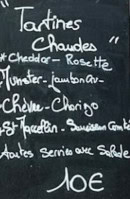 "Tartines
Chaudes"
*Cheddar - Rosette
Munster - jambon
Chèvre - Chorizo
St Marcellin - Saucisson
toutes servies avec Salade
10€